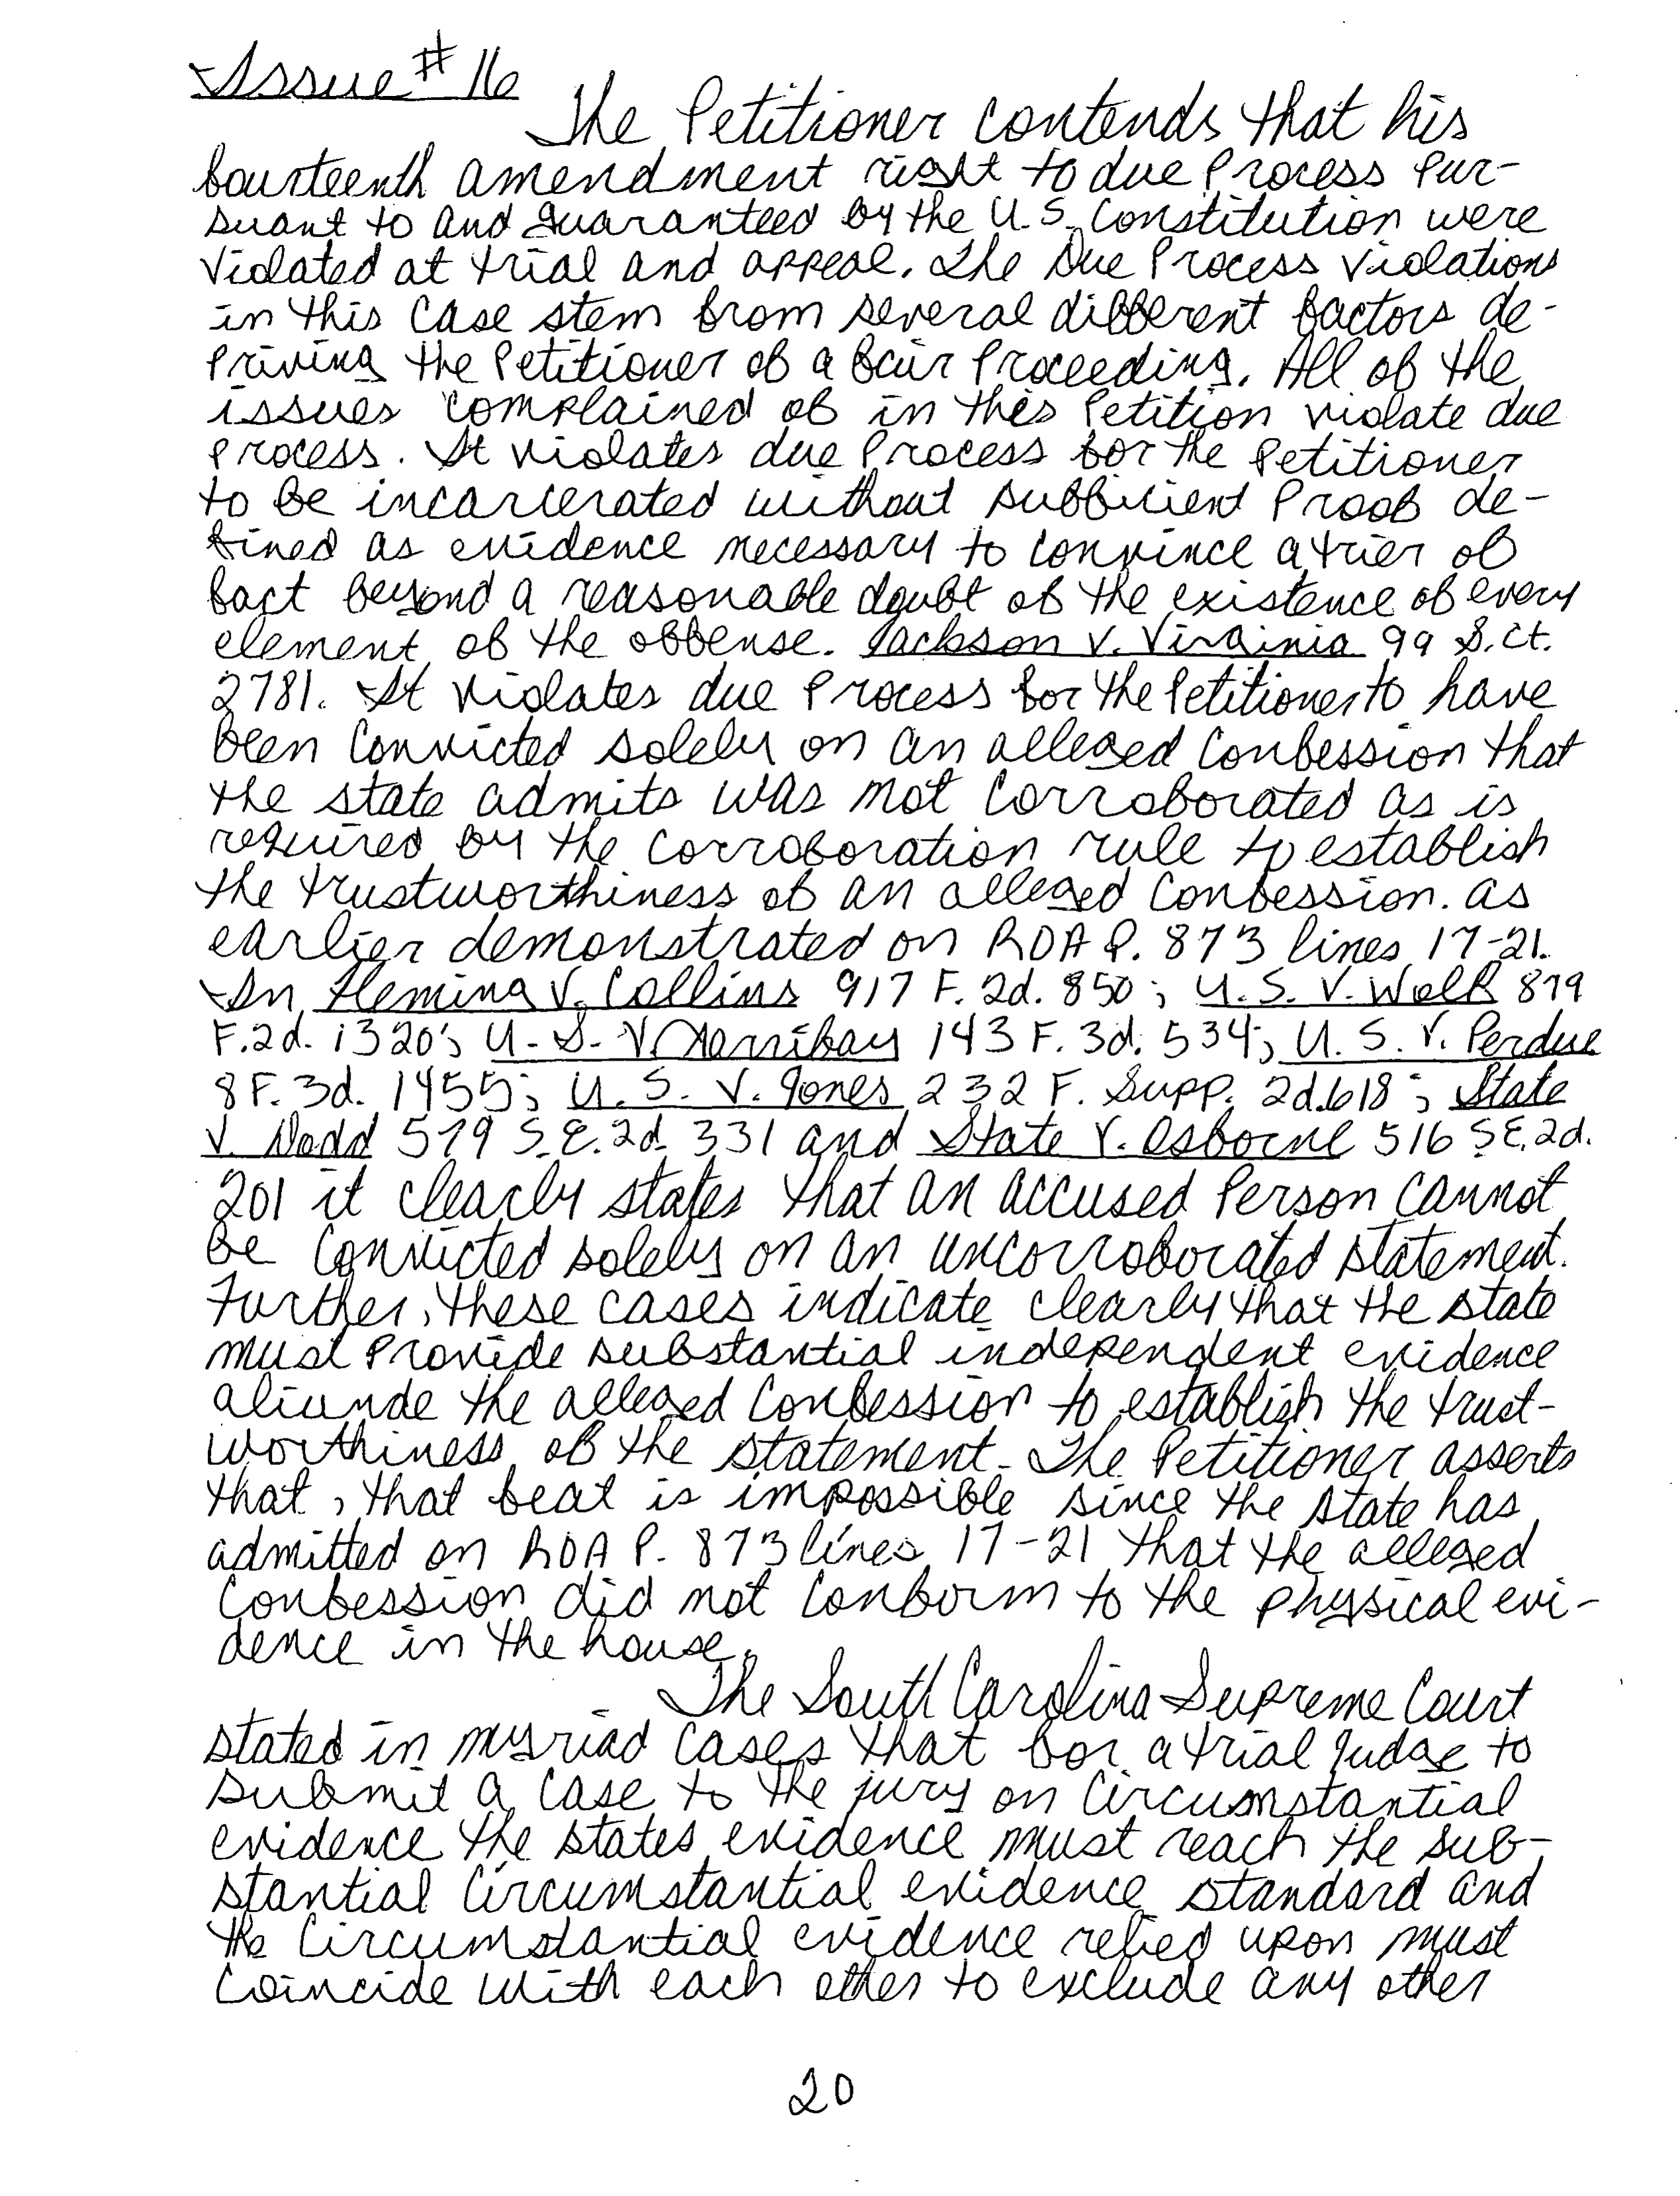 Issue # 16
The Petitioner contends that his
fourteenth amendment right to due Process Pur-
suant to and guaranteed by the U.S. Constitution were
violated at trial and appeal. The Due Process violations
in this case stem from several different factors de-
priving the Petitioner of a fair Proceeding. All of the
issues complained of in this Petition violate due
process. It violates due Process for the Petitioner
to be incarcerated without sufficient Proof de-
fined as evidence necessary to convince a trier of
fact beyond a reasonable doubt of the existence of every
element of the offense. Jackson v. Virginia 99 S.Ct.
2781. It violates due Process for the Petitioner to have
been convicted solely on an alleged Confession that
the state admits was not corroborated as is
required by the corroboration rule to establish
the trustworthiness of an alleged Confession. as
earlier demonstrated on ROA P. 873 lines 17-21.
In Fleming v. Collins 917 F. 2d. 850; U.S. V. Wolk 879
F.2d. 1320; U.S. V. Garribay 143 F. 3d. 534; U.S. V. Perdue
8 F. 3d. 1455; U.S. V. Jones 232 F. Supp. 2d.618; State
V. Dodd 579 S.E.2d 331 and State V. Osborne 516 S.E.2d.
201 it clearly states that an accused Person cannot
be convicted solely on an uncorroborated statement.
Further, these cases indicate clearly that the state
must Provide substantial independent evidence
aliunde the alleged Confession to establish the trust-
worthiness of the statement. The Petitioner asserts
that, that feat is impossible since the state has
admitted on ROA P. 873 lines 17-21 that the alleged
Confession did not conform to the physical evi-
dence in the house.
The South Carolina Supreme Court
stated in myriad cases that for a trial judge to
submit a case to the jury on Circumstantial
evidence the states evidence must reach the sub-
stantial Circumstantial evidence standard and
the Circumstantial evidence relied upon must
coincide with each other to exclude any other
20